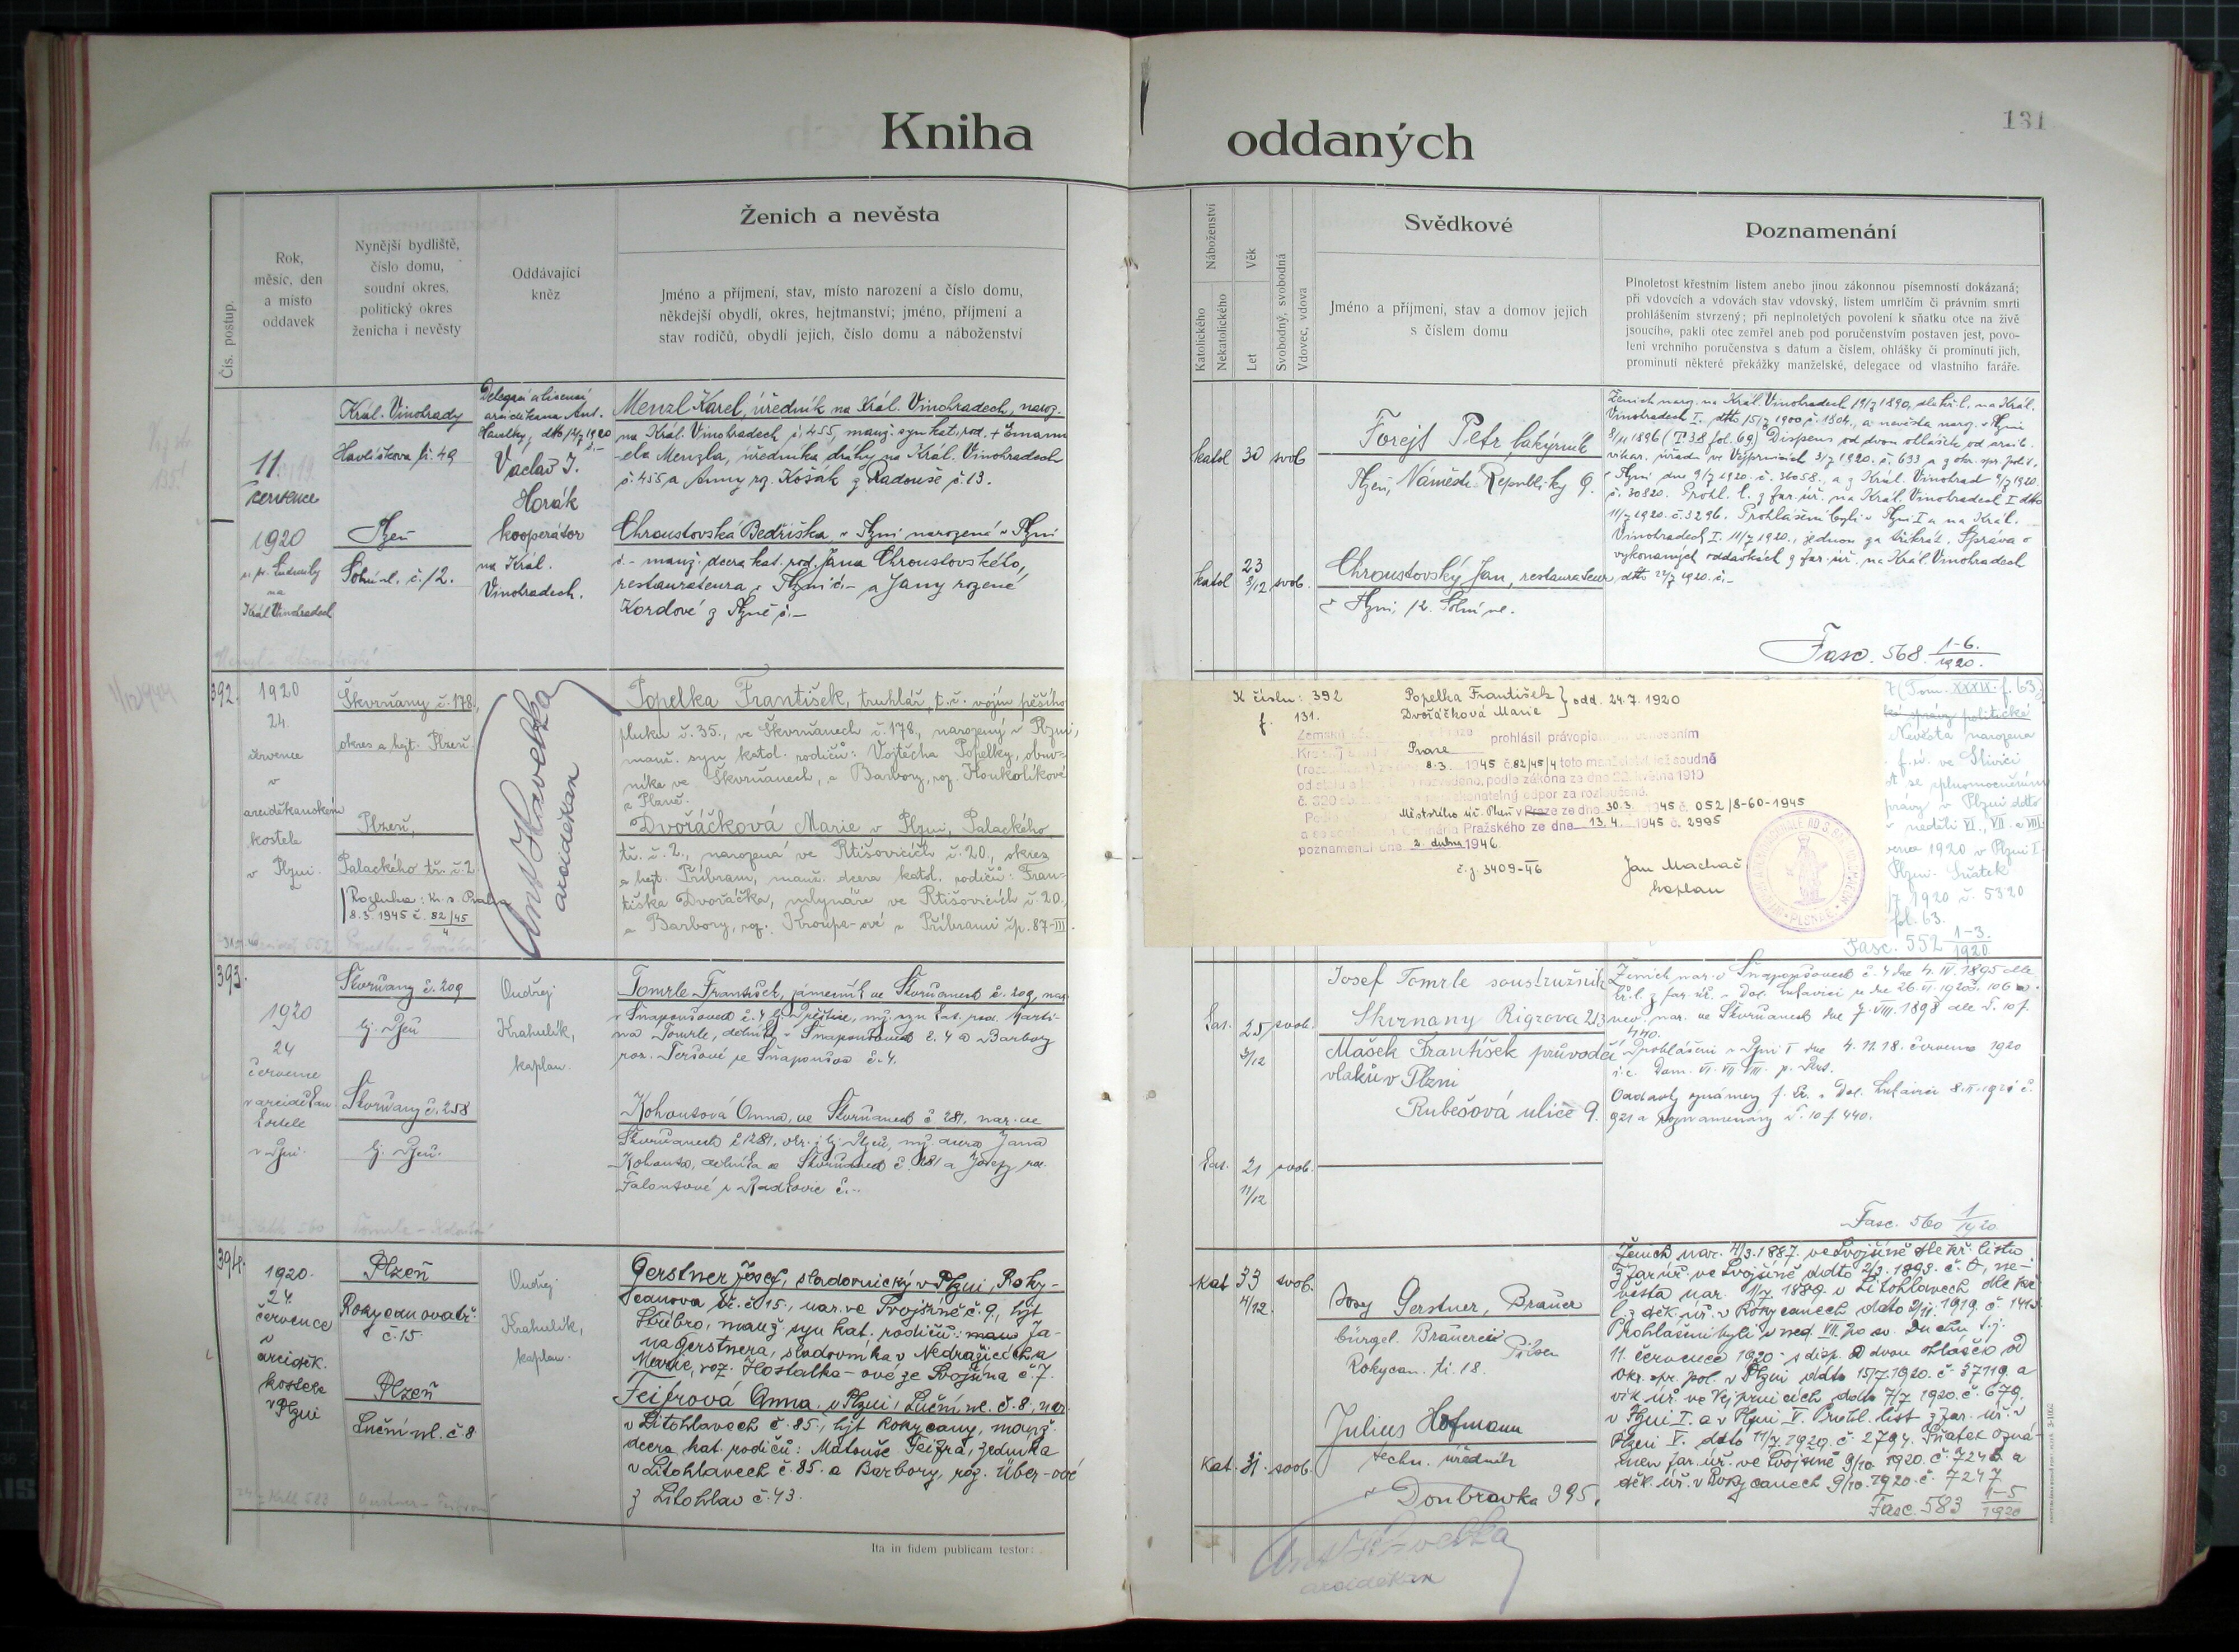 Kniha oddaných
131
Čís. postup.
Rok,
měsíc, den
a místo
oddavek
Nynější bydliště,
číslo domu,
soudní okres,
politický okres
ženicha i nevěsty
Oddávající
kněz
Ženich a nevěsta
Jméno a příjmení, stav, místo narození a číslo domu,
někdejší obydlí, okres, hejtmanství; jméno, příjmení a
stav rodičů, obydlí jejich, číslo domu a náboženství
Náboženství
Katolického
Nekatolického
Věk
Let
Svobodný, svobodná
Vdovec, vdova
Svědkové
Jméno a příjmení, stav a domov jejich
s číslem domu
Poznamenání
Plnoletost křestním listem anebo jinou zákonnou písemností dokázaná;
při vdovcích a vdovách stav vdovský, listem umrlčím či právním smrti
prohlášením stvrzený; při neplnoletých povolení k sňatku otce na živě
jsoucího, pakli otec zemřel aneb pod poručenstvím postaven jest, povo-
lení vrchního poručenstva s datum a číslem, ohlášky či prominutí jich,
prominutí některé překážky manželské, delegace od vlastního faráře.
11.
července
1920
Král. Vinohrady
Král. Vinohrady
Havlíčkova tř. 49
Plzeň
Solní ul. č. 12.
arciděkana Ant.
Havelky, dtto 12/7 1920
Václav J.
Horák
kooperátor
na Král.
Vinohradech.
Menzl Karel, úředník na Král. Vinohradech, naroz.
na Král. Vinohradech č. 455, manž. syn kat. rod. + Emanu-
-ela Menzla, úředníka dráhy na Král. Vinohradech
č. 455 a Anny roz. Košák z Radouše č. 13.
Chroustovská Bedřiška v Plzni narozená v Plzni
č. - manž. dcera kat. rod. Jana Chroustovského,
restaurateura v Plzni č. - a Jany rozené
Kordové z Plzně č. -
katol 30 svob
katol 23 8/12 svob.
Forejt Petr lakýrník
Plzeň, Náměstí Republiky 9.
Chroustovský Jan, restaurateur
v Plzni, 12. Solní ul.
Ženich narz. na Král. Vinohradech 19/7 1890, dle kř. l. na Král.
Vinohradech I. dtto 15/7 1900 č. 1504, a nevěsta narz. v Plzni
8/11 1896 (T. 38 fol. 69) Dispens od dvou ohlášek od arcib.
vikar. úřadu ve Vejprnicích 3/7 1920. č. 633 a z okr. spr. polit.
v Plzni dne 9/7 1920. č. 36058., a z Král. Vinohrad 9/7 1920.
č. 30820. Prohl. l. z far. úř. na Král. Vinohradech I dtto
11/7 1920. č. 3296. Prohlášeni byli v Plzni I a na Král.
Vinohradech I. 11/7 1920., jednou za třikrát. Zpráva o
vykonaných oddavkách z far. úř. na Král. Vinohradech
dtto 22/7 1920. č. -
Fasc. 568. 1-6. 1920.
392.
1920
24.
července
v
arciděkanském
kostele
v Plzni.
Škvrňany č. 178,
okres a hejt. Plzeň.
Plzeň,
Palackého tř. č. 2.
Rozluka: Kr. s. Praha
8. 3. 1945 č. 82/45/4
Ant Havelka
arciděkan
Popelka František, truhlář, t. č. vojín pěšího
pluku č. 35., ve Škvrňanech č. 178, narozený v Plzni,
manž. syn katol. rodičů: Vojtěcha Popelky, obuv-
níka ve Škvrňanech, a Barbory, roz. Houkolíkové
z Plané.
Dvořáčková Marie v Plzni, Palackého
tř. č. 2., narozená ve Rtišovicích č. 20., okres
a hejt. Příbram, manž. dcera katol. rodičů: Fran-
tiška Dvořáčka, mlynáře ve Rtišovicích č. 20.,
a Barbory, roz. Kroupa-ové z Příbrami čp. 87-III.
K číslu: 392
f. 131.
Popelka František } odd. 24. 7. 1920
Dvořáčková Marie
prohlásil právoplatným usnesením
Praze
8. 3. 1945 č. 82/45/4 toto manželství jež soudně
rozvedeno, podle zákona ze dne 22. května 1919
odpor za rozloučené.
Místního úř. Plzeň v Praze ze dne 30. 3. 1945 č. 052/8-60-1945
Pražského ze dne 13. 4. 1945 č. 2995
poznamenal dne 2. dubna 1946.
č. j. 3409-46
Jan Machač
kaplan
(Tom. XXXIX. f. 63)
správy politické
Nevěsta narozena
f. ú. ve Slivici
se zplnomocněním
správy v Plzni dtto
v neděli VI., VII. a VIII.
1920 v Plzni I.
Plzni. Sňatek
1920 č. 5320
fol. 63.
Fasc. 552 1-3. 1920
393.
1920
24
července
v arciděkan.
kostele
v Plzni.
Škvrňany č. 209
hj. Plzeň
Škvrňany č. 258
hj. Plzeň.
Ondřej
Krahulík,
kaplan.
Tomrle František, zámečník ve Škvrňanech č. 209, nar.
v Šnapoušovech č. 4 hj. Přeštice, mž. syn kat. rod. Marti-
na Tomrle, dělníka v Šnapoušovech č. 4 a Barbory
roz. Teršové ze Šnapoušov č. 4.
Kohoutová Anna, ve Škvrňanech č 281, nar. ve
Škvrňanech č 281, okr. i hj. Plzeň, mž. dcera Jana
Kohouta, dělníka ve Škvrňanech č. 281 a Josefy roz.
Faloutové z Radkovic č. -
kat. 25 3/12 svob.
kat. 21 11/12 svob.
Josef Tomrle soustružník
Skvrnany Rigrova 213
Mašek František průvodčí
vlaků v Plzni
Rubešová ulice 9.
Ženich nar. v Šnapoušovech č. 4 dne 4. IV. 1895 dle
nev. nar. ve Škvrňanech dne 7. VIII. 1898 dle T. 10 f.
440.
Prohlášeni v Plzni I dne 4. 11. 18. července 1920
t. j. Dom. VI. VII. VIII. p. Pent.
921 a poznamenány T. 10 f 440.
Fasc. 560 1/1920.
394.
1920.
24.
července
v
arciděk.
kostele
v Plzni
Plzeň
Rokycanova tř.
č. 15
Plzeň
Luční ul. č. 8
Ondřej
Krahulík,
kaplan.
Gerstner Josef, sladovnický v Plzni, Roky-
canova tř. č. 15., nar. ve Svojšíně č. 9, hjt
Stříbro, manž. syn kat. rodičů: Ja-
na Gerstnera, sladovníka v Nedražicích a
Marie, roz. Hostalka-ové ze Svojšína č. 7.
Feifrová Anna v Plzni, Luční ul. č. 8, nar.
v Litohlavech č. 85, hjt Rokycany, manž.
dcera kat. rodičů: Matouše Feifra, zedníka
v Litohlavech č. 85. a Barbory, roz. Über-ové
z Litohlav č. 43.
kat 33 4/12. svob.
kat. 31. svob.
Josef Gerstner, Brauer
bürgel. Brauerei Pilsen
Rokycan. tř. 18.
Julius Hofmann
techn. úředník
v Doubravka 395.
Ženich nar. 4/3. 1887. ve Svojšíně dle kř. listu
z far. úř. ve Svojšíně ddto 2/3. 1893. č. 0, ne-
věsta nar. 11/7. 1889. v Litohlavech dle kř.
Prohlášeni byli v ned. VII. po sv. Duchu t. j.
11. července 1920 s disp. od dvou ohlášek od
okr. spr. pol. v Plzni ddto 15/7. 1920. č. 37119. a
vik. úř. ve Vejprnicích ddto 7/7 1920. č. 679,
v Plzni I. a v Plzni V. Prohl. list z far. úř. v
Plzni V. ddto 11/7. 1920. č. 2794. Sňatek ozná-
men far. úř. ve Svojšíně 9/10 1920. č. 7246 a
děk. úř. v Rokycanech 9/10. 1920. č. 7247
Fasc. 583 1-5 1920
Ita in fidem publicam testor:
Ant Havelka
arciděkan